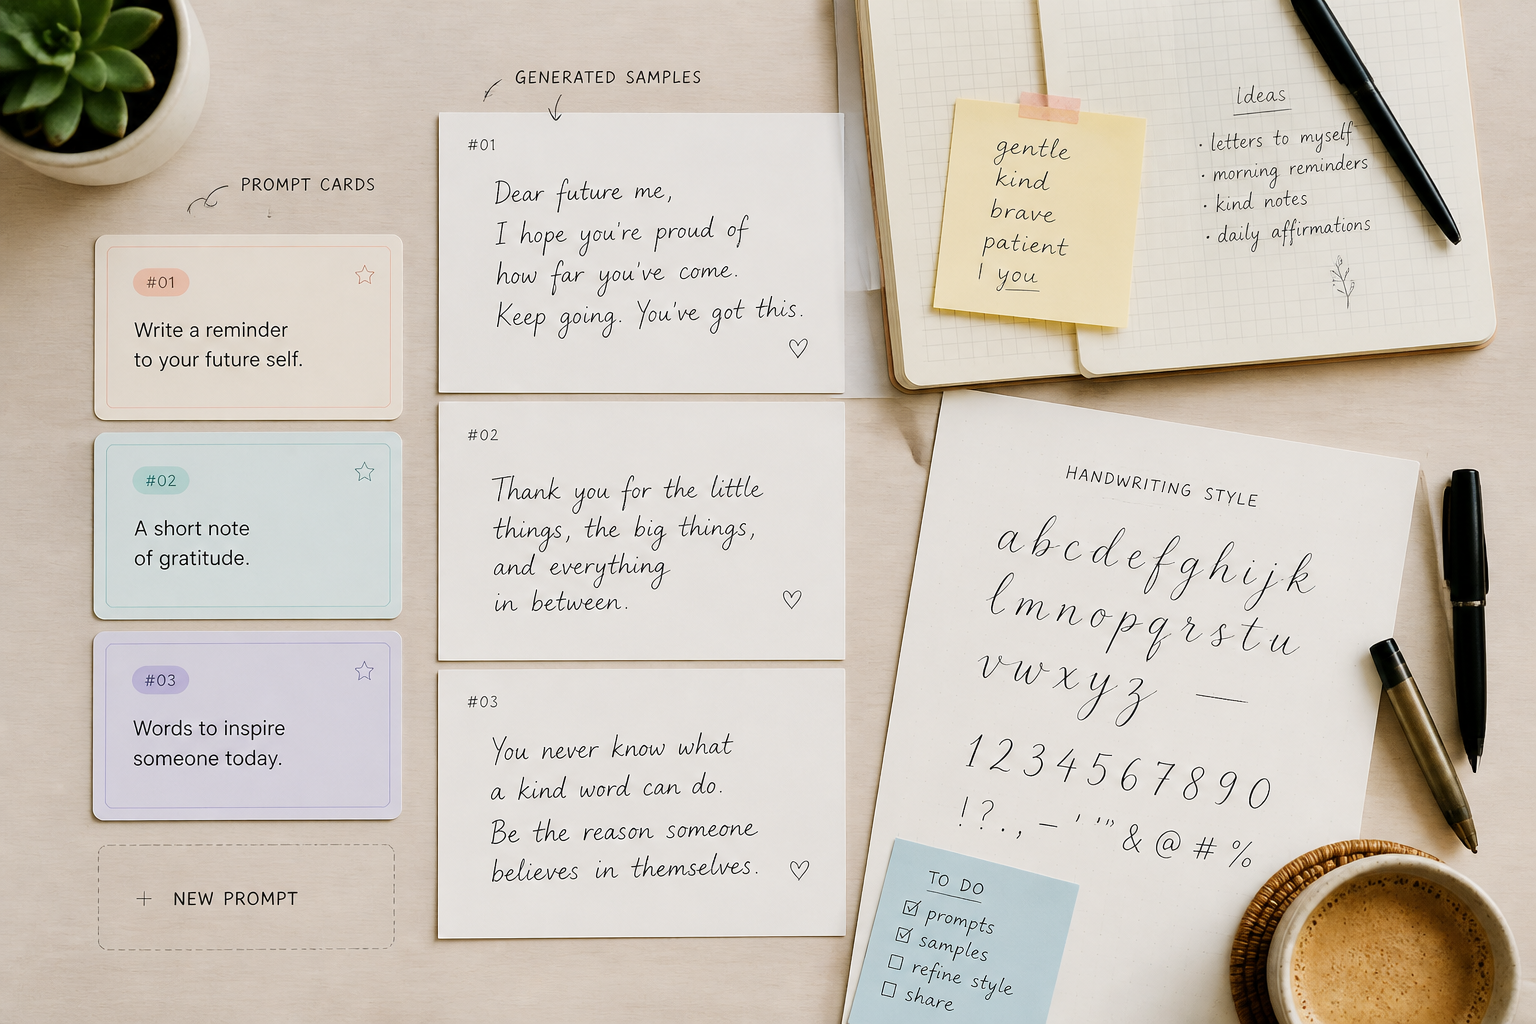 PROMPT CARDS
#01
Write a reminder
to your future self.
#02
A short note
of gratitude.
#03
Words to inspire
someone today.
+ NEW PROMPT
GENERATED SAMPLES
#01
Dear future me,
I hope you're proud of
how far you've come.
Keep going. You've got this.
#02
Thank you for the little
things, the big things,
and everything
in between.
#03
You never know what
a kind word can do.
Be the reason someone
believes in themselves.
gentle
kind
brave
patient
I you
Ideas
• letters to myself
• morning reminders
• kind notes
• daily affirmations
HANDWRITING STYLE
a b c d e f g h i j k
l m n o p q r s t u
v w x y z —
1 2 3 4 5 6 7 8 9 0
! ? . , – ' ' " & @ # %
TO DO
☑ prompts
☑ samples
☐ refine style
☐ share